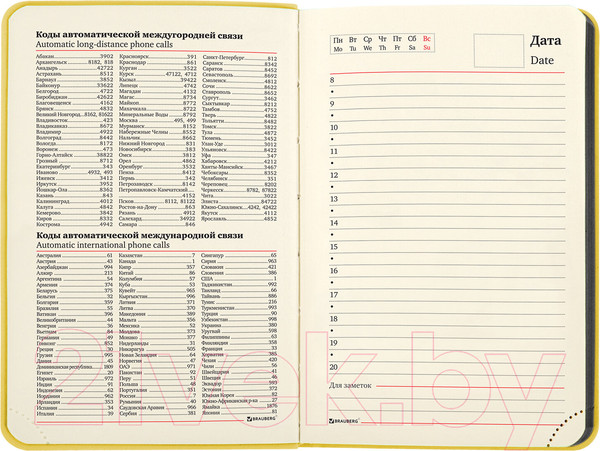 Коды автоматической междугородней связи
Automatic long-distance phone calls
Абакан 3902
Архангельск 8182, 818
Ахмадарь 42722
Астрахань 8512
Барнаул 3852
Байконур 33622
Белгород 4722
Биробиджан 42622
Благовещенск 4162
Брянск 4832
Великий Новгород 8162, 81622
Владивосток 423
Владикавказ 8672
Владимир 4922
Волгоград 8442
Вологда 8172
Воронеж 473
Горно-Алтайск 38822
Грозный 8712
Екатеринбург 343
Иваново 4932, 493
Ижевск 3412
Иркутск 3952
Йошкар-Ола 8362
Казань 843
Калининград 4012
Калуга 4842
Кемерово 3842
Киров 8332
Кострома 4942
Красноярск 391
Краснодар 861
Курган 3522
Курск 47122, 4712
Кызыл 39422
Липецк 4742
Магадан 4132
Магас 8734
Майкоп 8772
Махачкала 8722
Минеральные Воды 87922
Москва 495, 499
Мурманск 8152
Набережные Челны 8552
Нальчик 8662
Нижний Новгород 831
Новосибирск 383
Омск 3812
Орел 4862
Оренбург 3532
Пенза 8412
Пермь 342
Петрозаводск 8142
Псков 8112, 81122
Ростов-на-Дону 863
Рязань 4912
Салехард 34922
Самара 846
Санкт-Петербург 812
Саранск 8342
Саратов 8452
Севастополь 8692
Смоленск 4812
Сочи 8622
Ставрополь 8652
Сургут 3462
Сыктывкар 8212
Тамбов 4752
Тверь 4822
Тольятти 8482
Томск 3822
Тула 4872
Тюмень 3452
Улан-Удэ 3012
Ульяновск 8422
Уфа 347
Хабаровск 4212
Ханты-Мансийск 3467
Чебоксары 8352
Челябинск 351
Череповец 8202
Черкесск 8782, 87822
Чита 3022
Элиста 84722
Южно-Сахалинск 4242, 42422
Якутск 4112
Ярославль 4852
Коды автоматической международной связи
Automatic international phone calls
Австралия 61
Австрия 43
Азербайджан 994
Алжир 213
Аргентина 54
Армения 374
Беларусь 375
Бельгия 32
Болгария 359
Бразилия 55
Ватикан 396
Великобритания 44
Венгрия 36
Вьетнам 84
Германия 49
Гонконг 852
Греция 30
Грузия 995
Дания 45
Доминиканская республика 1809
Египет 20
Израиль 972
Индия 91
Индонезия 62
Иордания 962
Ирландия 353
Испания 34
Италия 39
Казахстан 7
Канада 1
Кипр 357
Китай 86
Колумбия 57
Куба 53
Кувейт 965
Кыргызстан 996
Латвия 371
Литва 370
Македония 389
Мальта 356
Мексика 52
Молдова 373
Монако 377
Нидерланды 31
Никарагуа 505
Новая Зеландия 64
Норвегия 47
ОАЭ 971
Пакистан 92
Перу 51
Польша 48
Португалия 351
Россия 7
Румыния 40
Саудовская Аравия 966
Сербия 381
Сингапур 65
Сирия 963
Словакия 421
Словения 386
США 1
Таджикистан 992
Таиланд 66
Тайвань 886
Тунис 216
Туркменистан 993
Турция 90
Узбекистан 998
Украина 380
Уругвай 598
Филиппины 63
Финляндия 358
Франция 33
Хорватия 385
Чехия 420
Чили 56
Швейцария 41
Швеция 46
Эквадор 593
Эстония 372
Южная Корея 82
Южно-Африканская р-ка 27
Ямайка 1876
Япония 81
BRAUBERG
Пн Вт Ср Чт Пт Сб Вс
Mo Tu We Th Fr Sa Su
Дата
Date
8
9
10
11
12
13
14
15
16
17
18
19
20
Для заметок
BRAUBERG
21vek.by